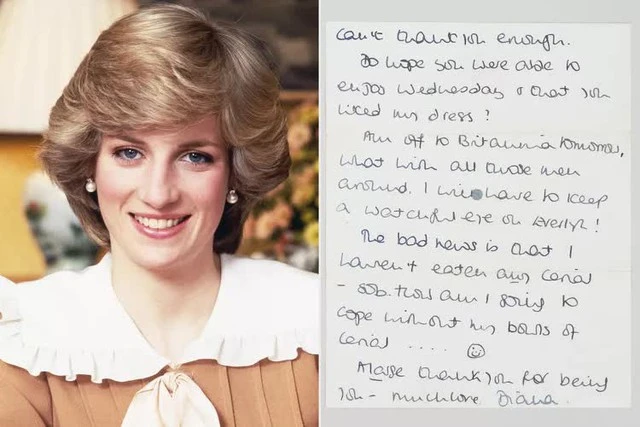 Can't thank you enough.
Do hope you were able to
enjoy Wednesday & that you
liked my dress?
Am off to Britannia tomorrow,
what with all those men
around. I will have to keep
a watchful eye on Evelyn!
The bad news is that I
haven't eaten any cereal
- sob. How am I going to
cope without my bowls of
cereal .... ☺
Masse thankyou for being
you - much love Diana.